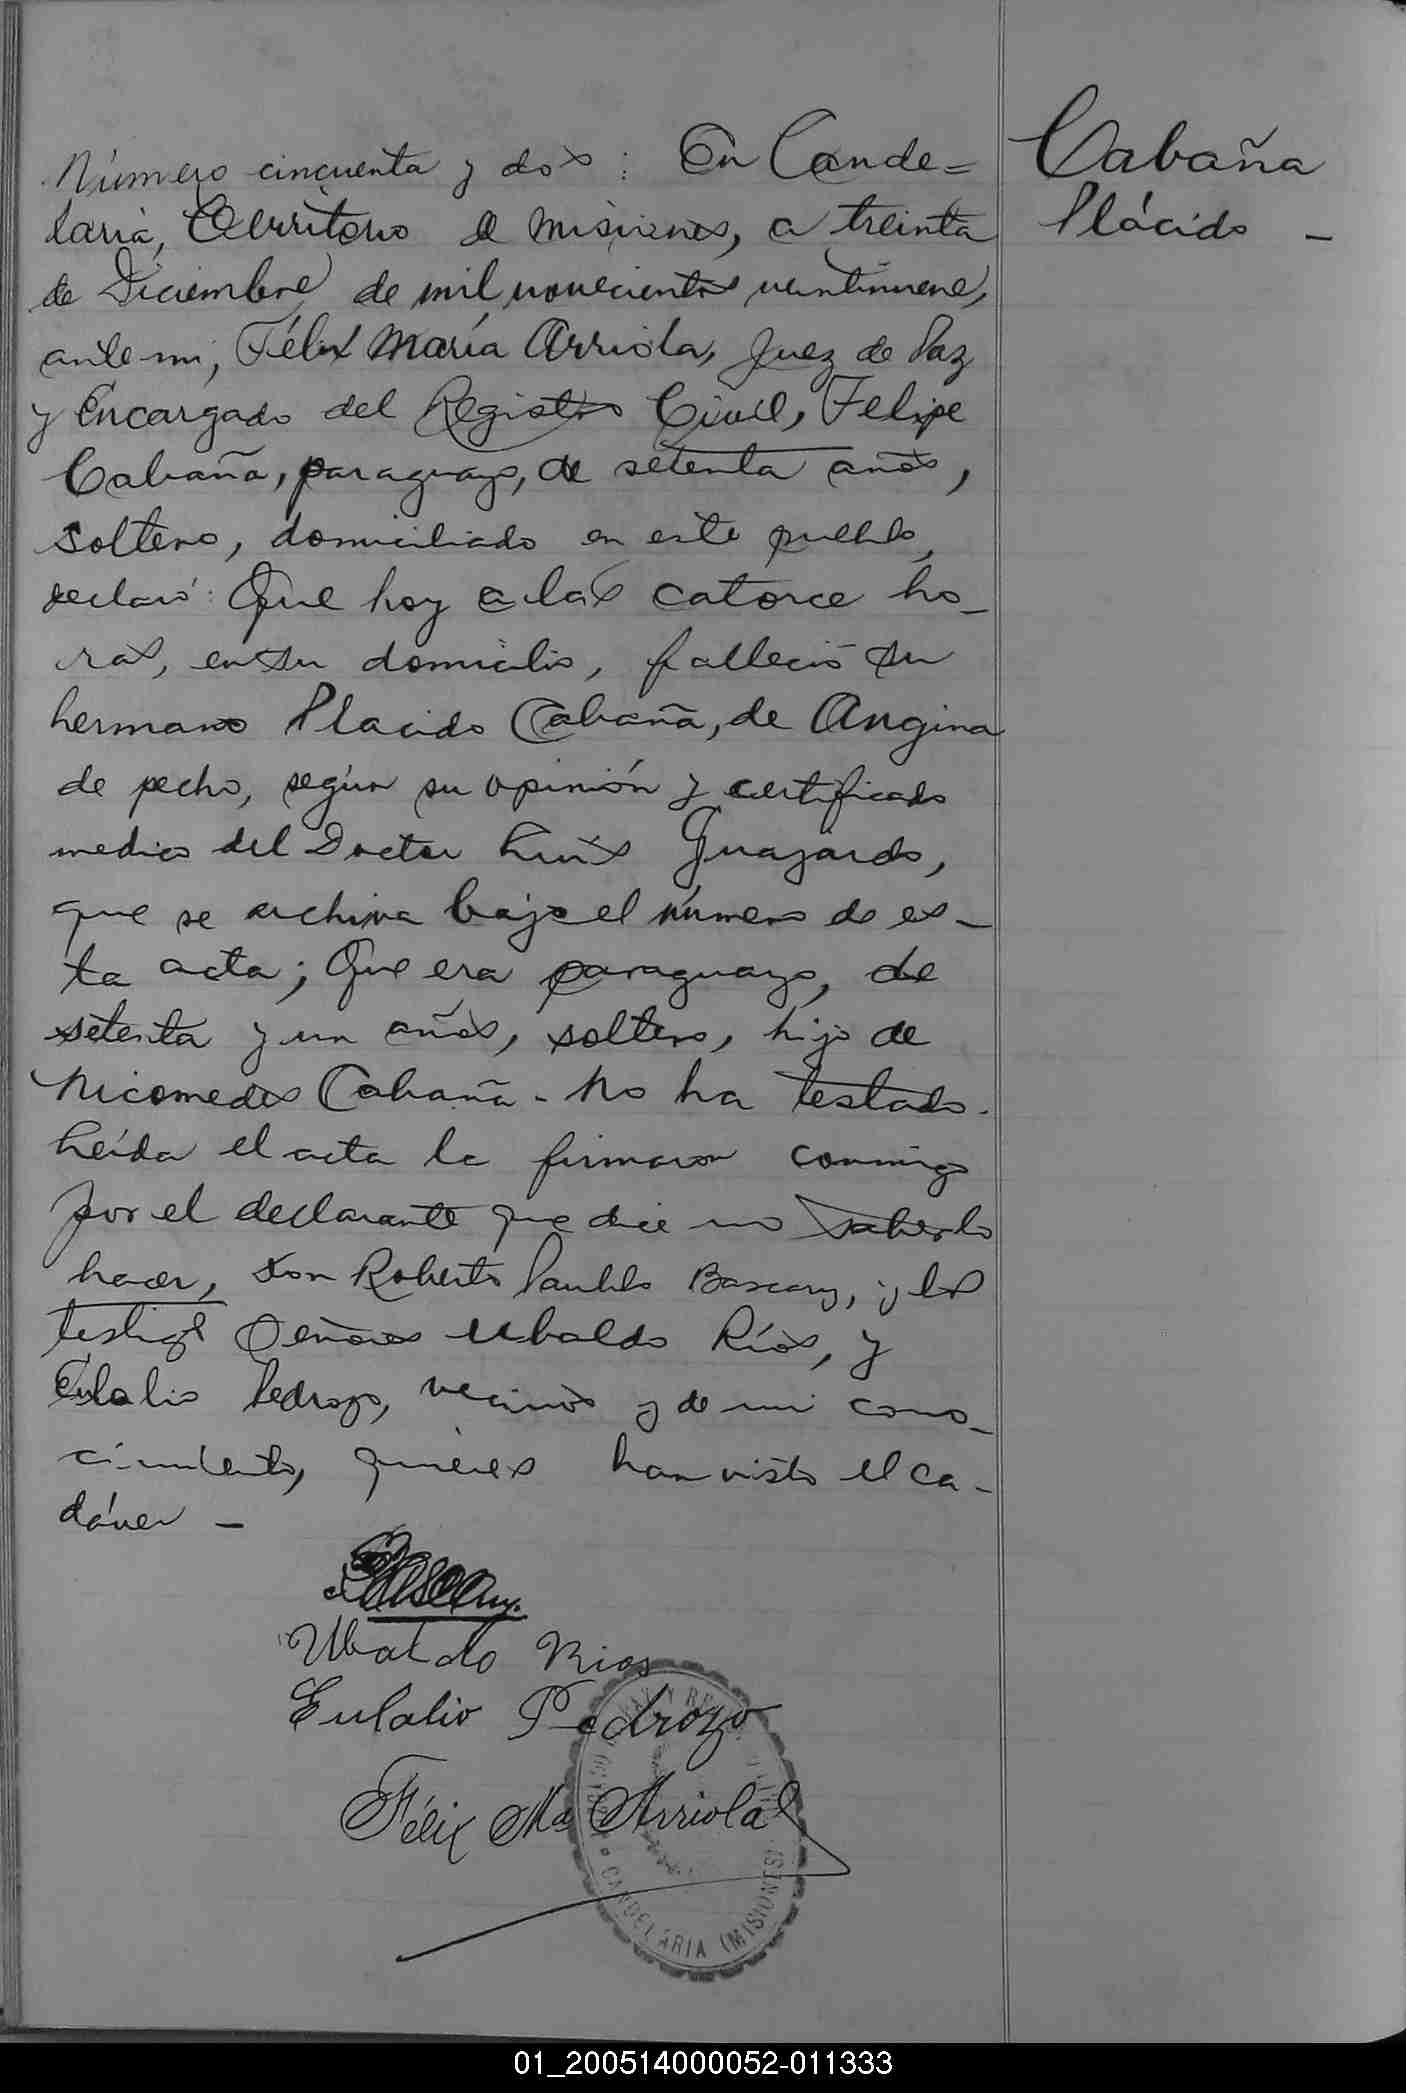 Cabaña
Plácido -
Número cincuenta y dos: En Cande=
laria, Territorio de Misiones, a treinta
de Diciembre de mil novecientos veintinueve,
ante mi, Félix María Arriola, Juez de Paz
y Encargado del Registro Civil, Felipe
Cabaña, paraguayo, de setenta años,
soltero, domiciliado en este pueblo,
declaró: Que hoy a las catorce ho_
ras, en su domicilio, falleció su
hermano Placido Cabaña, de Angina
de pecho, según su opinión y certificado
medico del Doctor Luis Guajardo,
que se archiva bajo el número de es_
ta acta; Que era paraguayo, de
setenta y un años, soltero, hijo de
Nicomedes Cabaña - No ha testado.
Leída el acta la firmaron conmigo
por el declarante que dice no saberlo
hacer, Don Roberto Paublo Bascary, y los
testigos Señores Ubaldo Ríos, y
Eulalio Pedrozo, vecinos y de mi cono_
cimiento, quienes han visto el ca-
dáver -
Bascary.
Ubaldo Rios
Eulalio Pedrozo
Félix Ma Arriola
CANDELARIA (MISIONES)
01_200514000052-011333